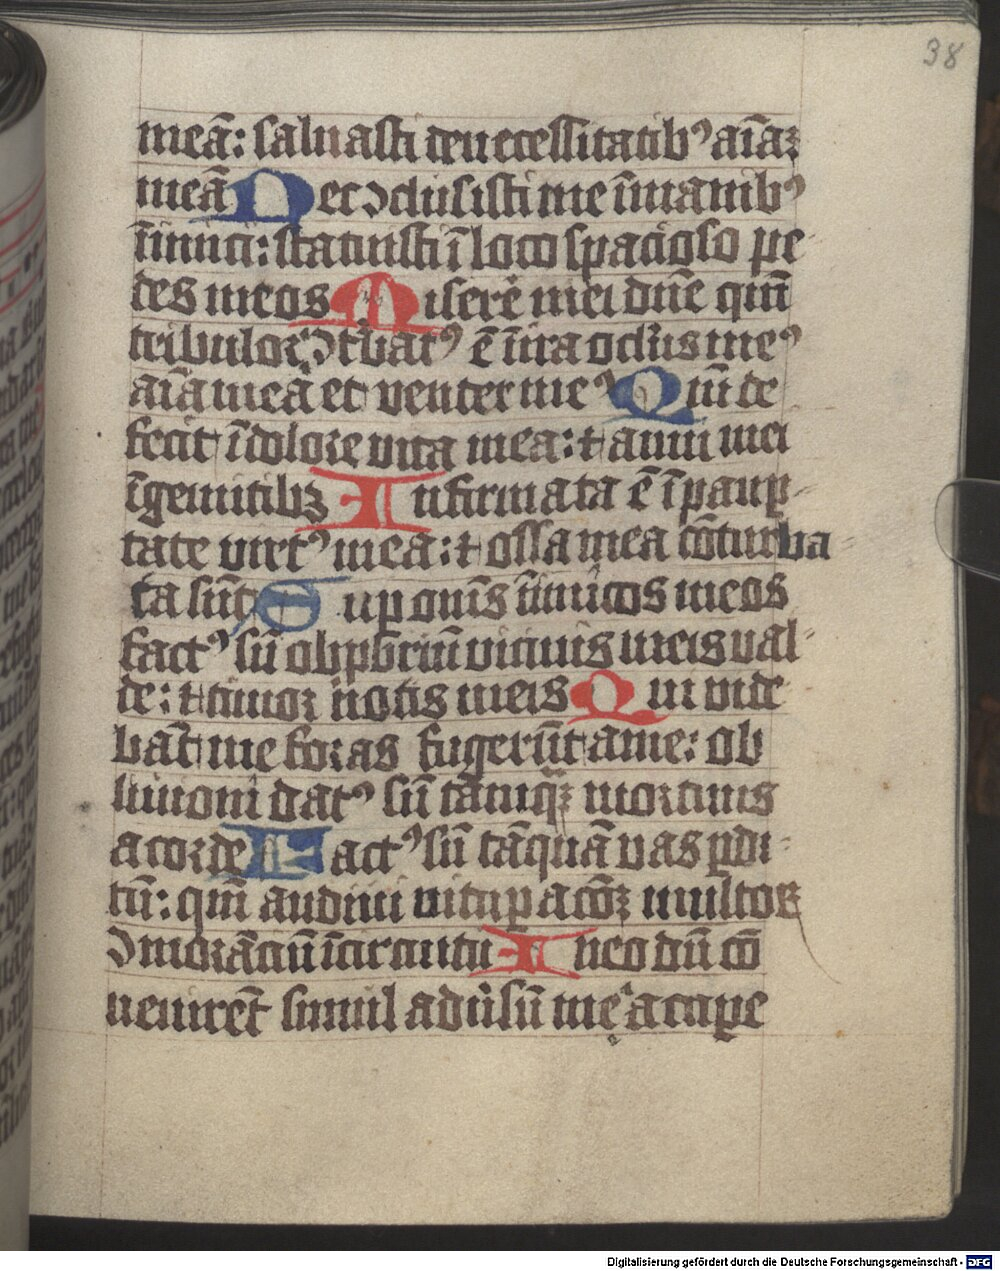 38
meā: saluasti denecessitatibꝰ aīaꝫ
meā Nec ꝯclusisti me īmanibꝰ
īimici: statuisti ī loco spacioso pe
des meos Miserē mei dn̄e qm̄
tribulor ꝯt͛batꝰ ē īira oculus meꝰ
aīa meā et venter meꝰ Qm̄ de
fecit īdolore vita mea: ⁊ anni mei
īgemitibꝫ Infirmata ē īpaup̲
tate virtꝰ mea: ⁊ ossa mea cōturba
ta sūt Sup̲ om̄s īimicos meos
factꝰ sū obp̲briū vicinis meis val
de: ⁊ timor notis meis Qui vide
bāt me foras fugerūt ame: ob
liuioni datꝰ sū tāmqꝫ mortuus
acorde Factꝰ sū tāquā vas p̲di
tū: qm̄ audiui vitup̲acōꝫ multoꝝ
ꝯmorāciū īcircuitu Ineo dū cō
uenirēt simul adūsū me acape
Digitalisierung gefördert durch die Deutsche Forschungsgemeinschaft - DFG